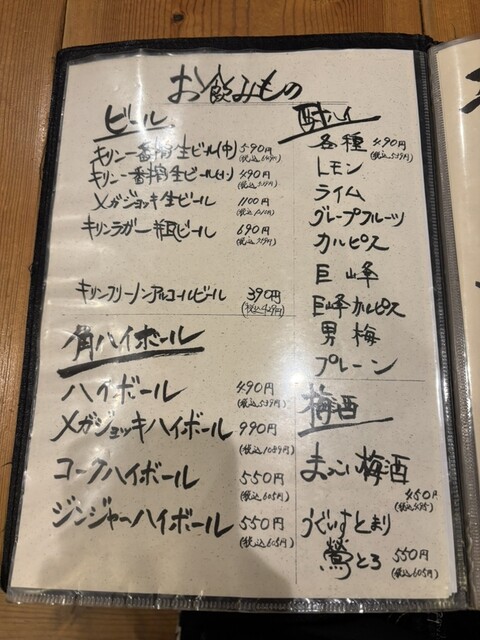 お飲みもの
ビール
キリン一番搾り生ビール(中) 590円
(税込649円)
キリン一番搾り生ビール(小) 490円
(税込539円)
メガジョッキ生ビール 1100円
(税込1210円)
キリンラガー瓶ビール 690円
(税込759円)
キリンフリーノンアルコールビール 390円
(税込429円)
角ハイボール
ハイボール 490円
(税込539円)
メガジョッキハイボール 990円
(税込1089円)
コークハイボール 550円
(税込605円)
ジンジャーハイボール 550円
(税込605円)
酎ハイ
各種 490円
(税込539円)
レモン
ライム
グレープフルーツ
カルピス
巨峰
巨峰カルピス
男梅
プレーン
梅酒
まっこい梅酒
450円
(税込495)
うぐいすとまり
鶯とろ 550円
(税込605円)